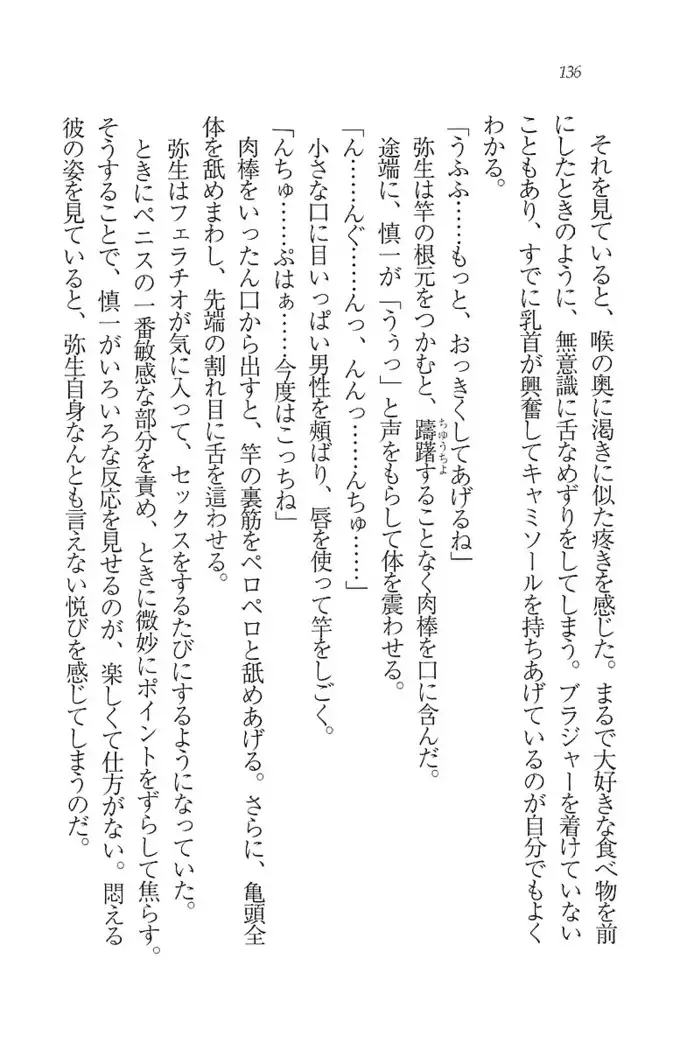 136
それを見ていると、喉の奥に渇きに似た疼きを感じた。まるで大好きな食べ物を前
にしたときのように、無意識に舌なめずりをしてしまう。ブラジャーを着けていない
こともあり、すでに乳首が興奮してキャミソールを持ちあげているのが自分でもよく
わかる。
「うふふ……もっと、おっきくしてあげるね」
弥生は竿の根元をつかむと、躊躇することなく肉棒を口に含んだ。
ちゅうちよ
途端に、慎一が「うぅっ」と声をもらして体を震わせる。
「ん……んぐ……んっ、んんっ……んちゅ……」
小さな口に目いっぱい男性を頬ばり、唇を使って竿をしごく。
「んちゅ……ぷはぁ……今度はこっちね」
肉棒をいったん口から出すと、竿の裏筋をペロペロと舐めあげる。さらに、亀頭全
体を舐めまわし、先端の割れ目に舌を這わせる。
弥生はフェラチオが気に入って、セックスをするたびにするようになっていた。
ときにペニスの一番敏感な部分を責め、ときに微妙にポイントをずらして焦らす。
そうすることで、慎一がいろいろな反応を見せるのが、楽しくて仕方がない。悶える
彼の姿を見ていると、弥生自身なんとも言えない悦びを感じてしまうのだ。